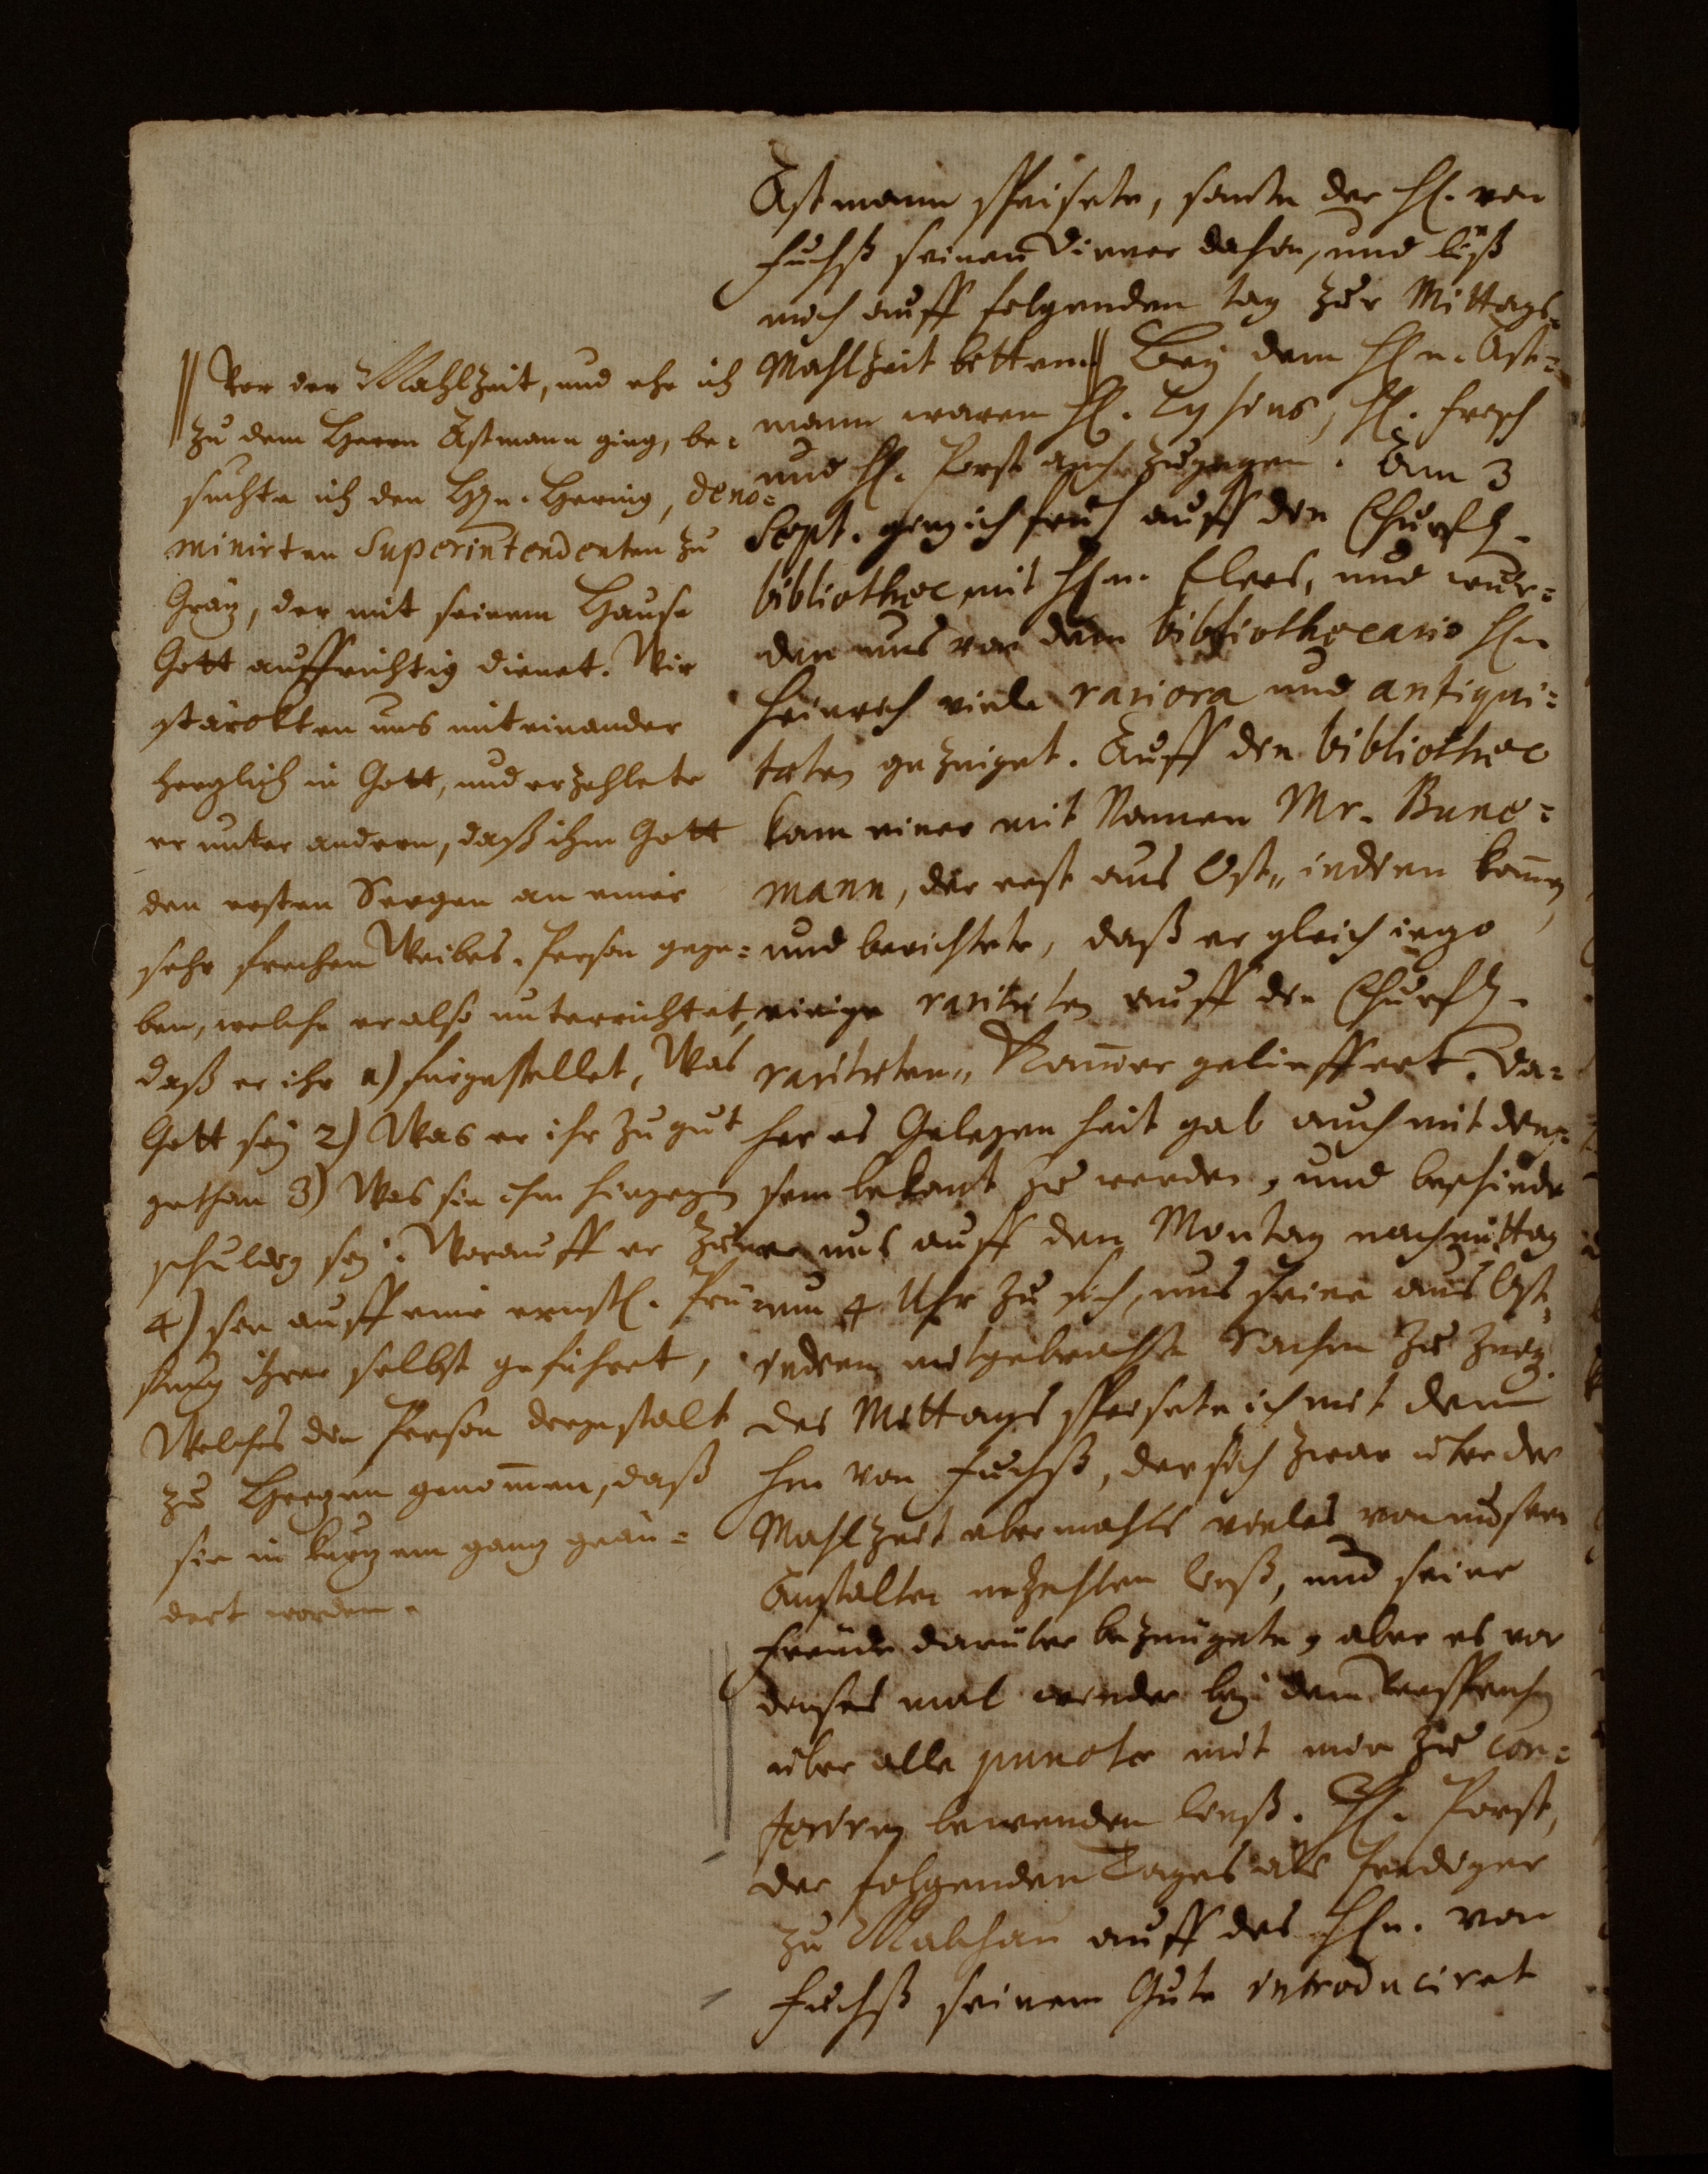 Astmann speisete, sante der H. von
Fuchß seinen Diener dahin, und ließ
mich auff folgenden tag zur Mittags-
Mahlzeit bitten. || Bey dem Hn. Ast=
mann waren H. Lysius, H. Frisch
und H. Porst auch zugegen. Am 3
Sept. ging ich früh auff die Churfl.
bibliothec mit Hn. Elers, und wur=
den uns von dem bibliothecario Hn
Heinrich viele rariora und antiqui=
teten gezeiget. Auff die bibliothec
kam einer mit Namen Mr. Bune=
mann, der erst aus Ost„ indien kommen,
und berichtete, daß er gleich ietzo
einige rariteten auff die Churfl.
rariteten„ Kammer geliefert. Da=
her es Gelegenheit gab auch mit die=
sem bekant zu werden, und beschiede
er uns auff den Montag nachmittag
um 4 Uhr zu sich, uns seine aus Ost=
indien mitgebrachte Sachen zu zeigen.
Des Mittags speisete ich mit dem
Hn von Fuchß, der sich zwar über der
Mahlzeit abermahls vieles von unsern
Anstalten erzehlen ließ, und seine
Freude darüber bezeugete, aber es vor
dieses mal wieder bey dem Versprechen
über alle puncte mit mir zu con=
feriren bewenden ließ. H. Porst,
der folgenden Tages als Prediger
zu Malchau auff des Hn. von
Fuchß seinem Gute introduciret
|| Vor der Mahlzeit, und ehe ich
zu dem Herrn Astmann ging, be=
suchte ich den Hn. Hering, deno=
minirten Superintendenten zu
, der mit seinem Hause
Gott auffrichtig dienet. Wir
stärckten uns mit einander
hertzlich in Gott, und erzehlete
er unter andern, daß ihm Gott
den ersten Seegen an einer
sehr frechen Weibes-Person gege=
ben, welche er also unterrichtet,
daß er ihr 1) fürgestellet, Was
Gott sey 2) Was er ihr zu gut
gethan 3) Was sie ihm hingegen
schuldig sey. Worauff er
4) sie auff eine ernstl. Prü=
fung ihrer selbst geführet,
Welches die Person dergestalt
zu Hertzen genommen, daß
sie in kurtzem gantz geän=
dert worden.